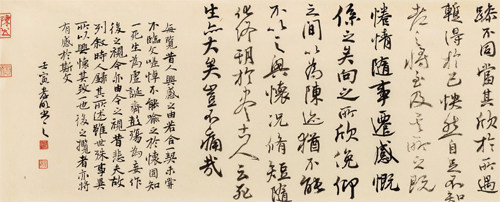 躁不同於所遇
暫得於己快然自足不知
老之將至及其所之
惓情隨事遷感慨
係之矣向之所欣俛仰
之間以為陳迹猶不能
不以之興懷況脩短隨
化終期於盡古人云死
生亦大矣豈不痛哉
每覽昔人興感之由若合一契未嘗
不臨文嗟悼不能喻之於懷固知
一死生為虛誕齊彭殤為妄作
後之視今亦由今之視昔悲夫故
列敘時人錄其所述雖世殊事異
所以興懷其致一也後之覽者亦將
有感於斯文
壬寅